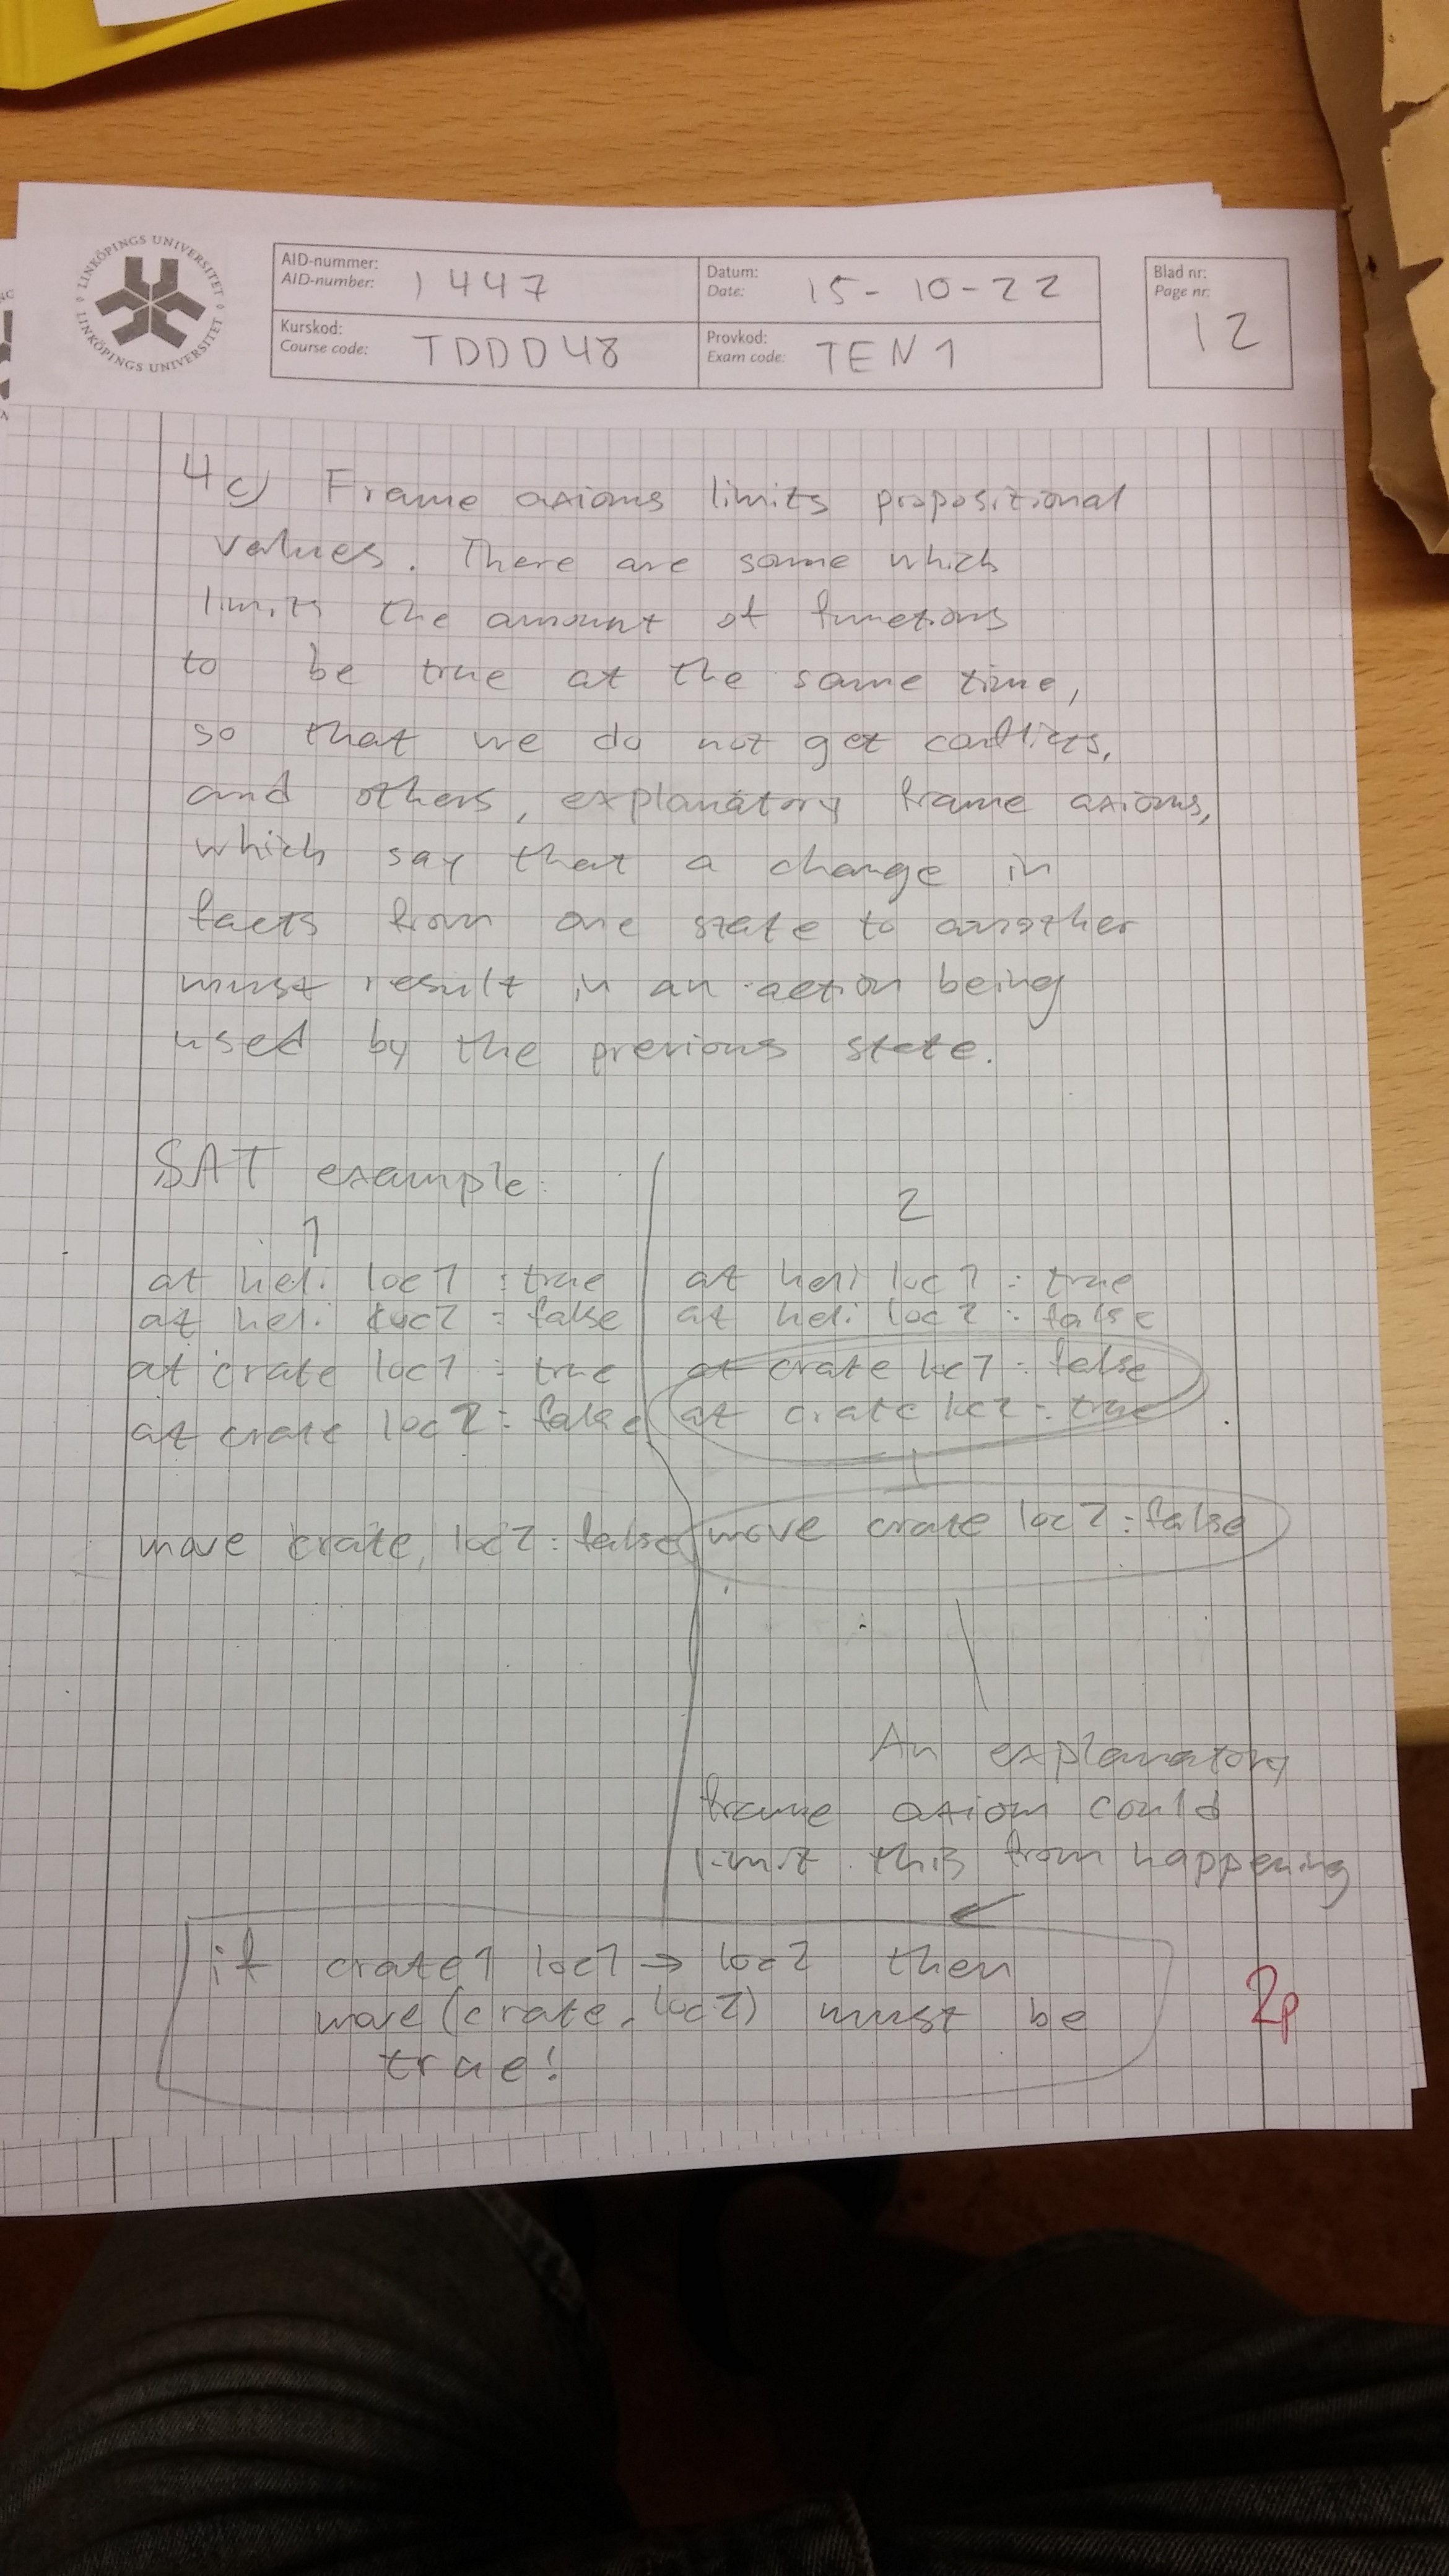 LINKÖPINGS UNIVERSITET
LINKÖPINGS UNIVERSITET
AID-nummer:
AID-number: 1447
Datum:
Date: 15-10-22
Blad nr:
Page nr:
12
Kurskod:
Course code: TDDD48
Provkod:
Exam code: TEN1
4c) Frame axioms limits propositional
values. There are some which
limits the amount of functions
to be true at the same time,
so that we do not get conflicts,
and others, explanatory frame axioms,
which say that a change in
facts from one state to another
must result in an action being
used by the previous state.
SAT example:
1
at heli loc1 : true
at heli loc2 : false
at crate loc1 : true
at crate loc2 : false
move crate, loc2 : false
2
at heli loc1 : true
at heli loc2 : false
at crate loc1 : false
at crate loc2 : true
move crate loc2 : false
An explanatory
frame axiom could
limit this from happening
if crate1 loc1 → loc2 then
move(crate, loc2) must be
true!
2p